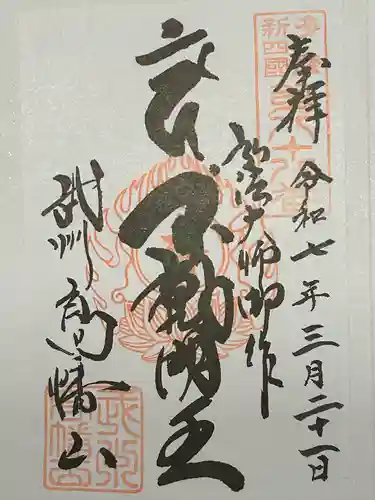 奉拝
令和七年三月二十一日
弘法大師御作
不動明王
武州
高幡山
新四國